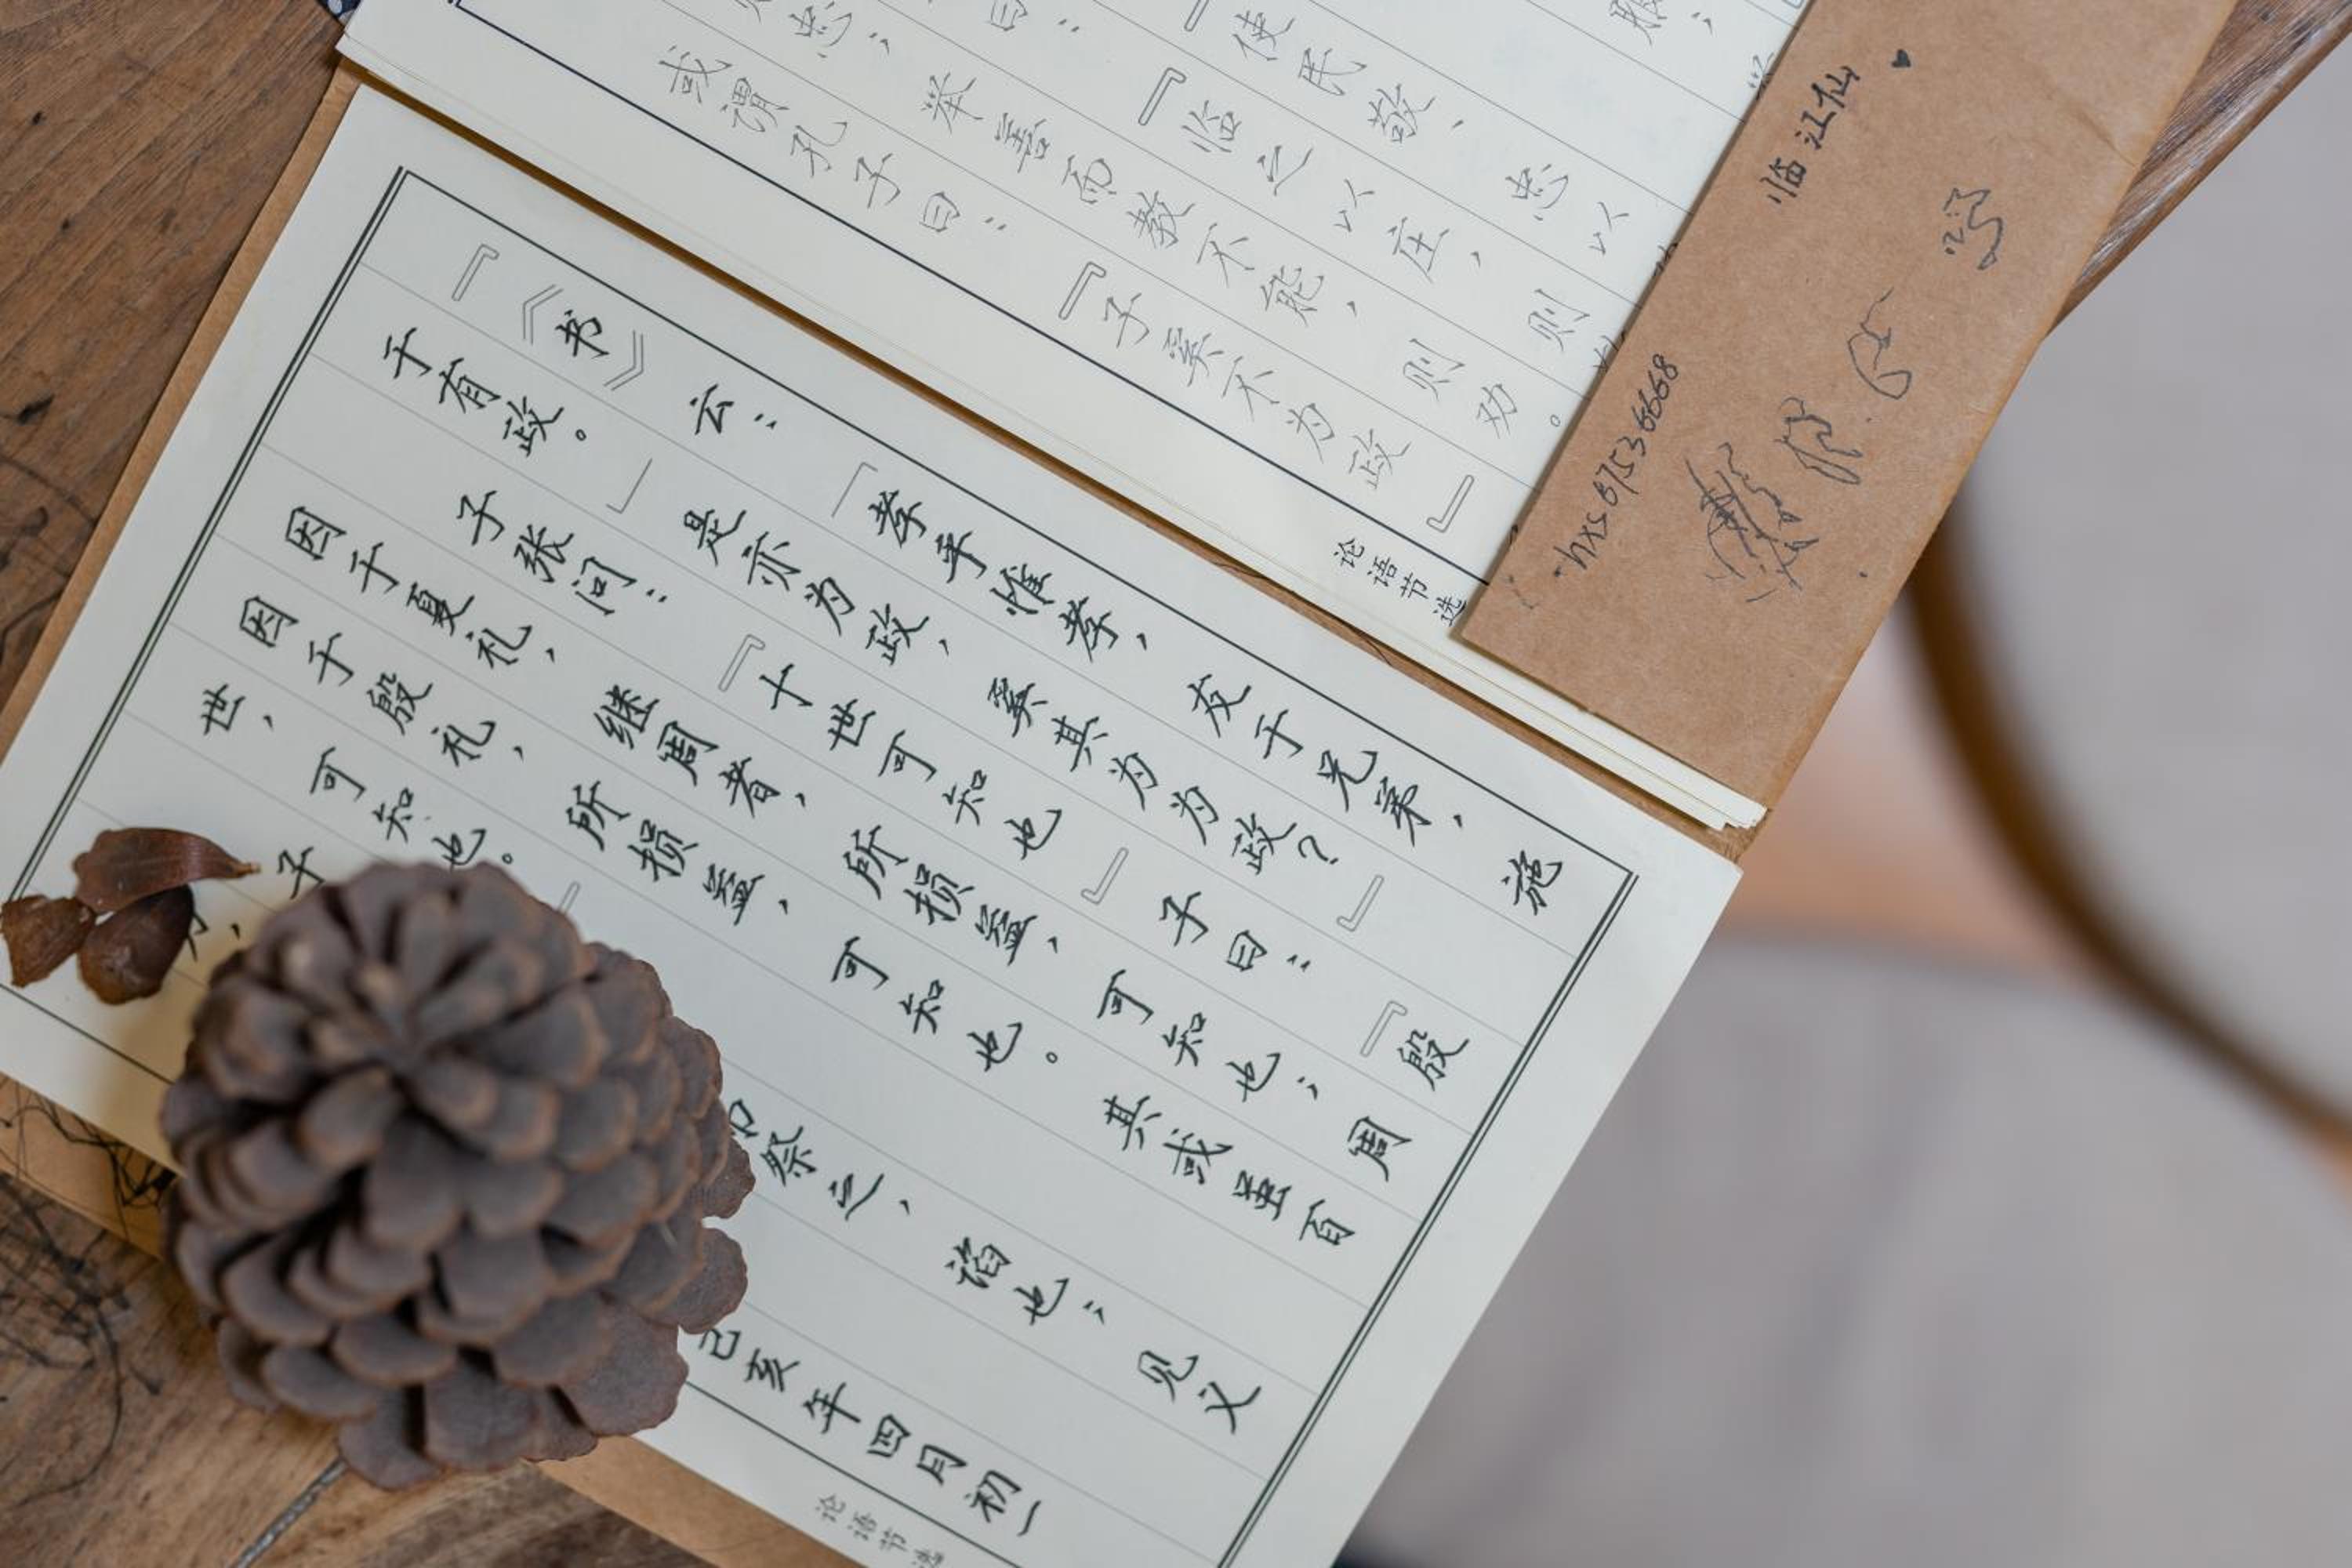 服；
『使民敬、忠以
曰：『临之以庄，则
忠；举善而教不能，则劝。
或谓孔子曰：『子奚不为政』
论语节选
临江仙
『《书》云：「孝乎惟孝，友于兄弟，施
于有政。」是亦为政，奚其为为政？』
子张问：『十世可知也』子曰：『殷
因于夏礼，继周者，所损益，可知也；周
因于殷礼，所损益，可知也。其或至百
世，可知也。』
子 祭之，谄也；见义
己亥年四月初一
论语节选